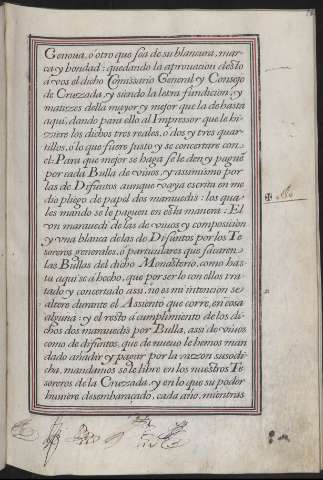 Genoua, o otro que sea de su blancura, mar-
ca, y bondad: quedando la aprouacion desto
a vos el dicho Comissario General, y Consejo
de Cruzada, y siendo la letra, fundicion, y
matizes della mayor, y mejor que la de hasta
aqui, dando para ello al Impressor que le hi-
ziere los dichos tres reales, o dos y tres quar-
tillos, o lo que fuere justo y se concertare con
el: Para que mejor se haga se le den, y pague
por cada Bulla de viuos, y assimismo por
las de Difuntos aunque vaya escrita en me-
dio pliego de papel dos marauedis: los qua-
les mando se le paguen en esta manera: El
vn marauedi de las de viuos y composicion
y vna blanca de las de Difuntos por los Te-
soreros generales, o particulares que sacaren
las Bullas del dicho Monasterio, como has-
ta aqui se a hecho, que por ser lo con ellos tra-
tado y concertado assi, no es mi intencion se
altere durante el Assiento que corre, en cosa
alguna: y el resto a cumplimiento de los di-
chos dos marauedis por Bulla, assi de viuos
como de difuntos, que de nueuo le hemos man
dado añadir y pagar por la razon susodi-
cha, mandamos se le libre en los nuestros Te-
soreros de la Cruzada, y en lo que su poder
huuiere desembaraçado, cada año, mientras